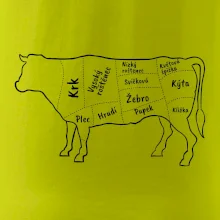 Krk
Vysoký
roštěnec
Nízký
roštěnec
Květová
špička
Svíčková
Kýta
Žebro
Pupek
Plec
Hrudí
Kližka